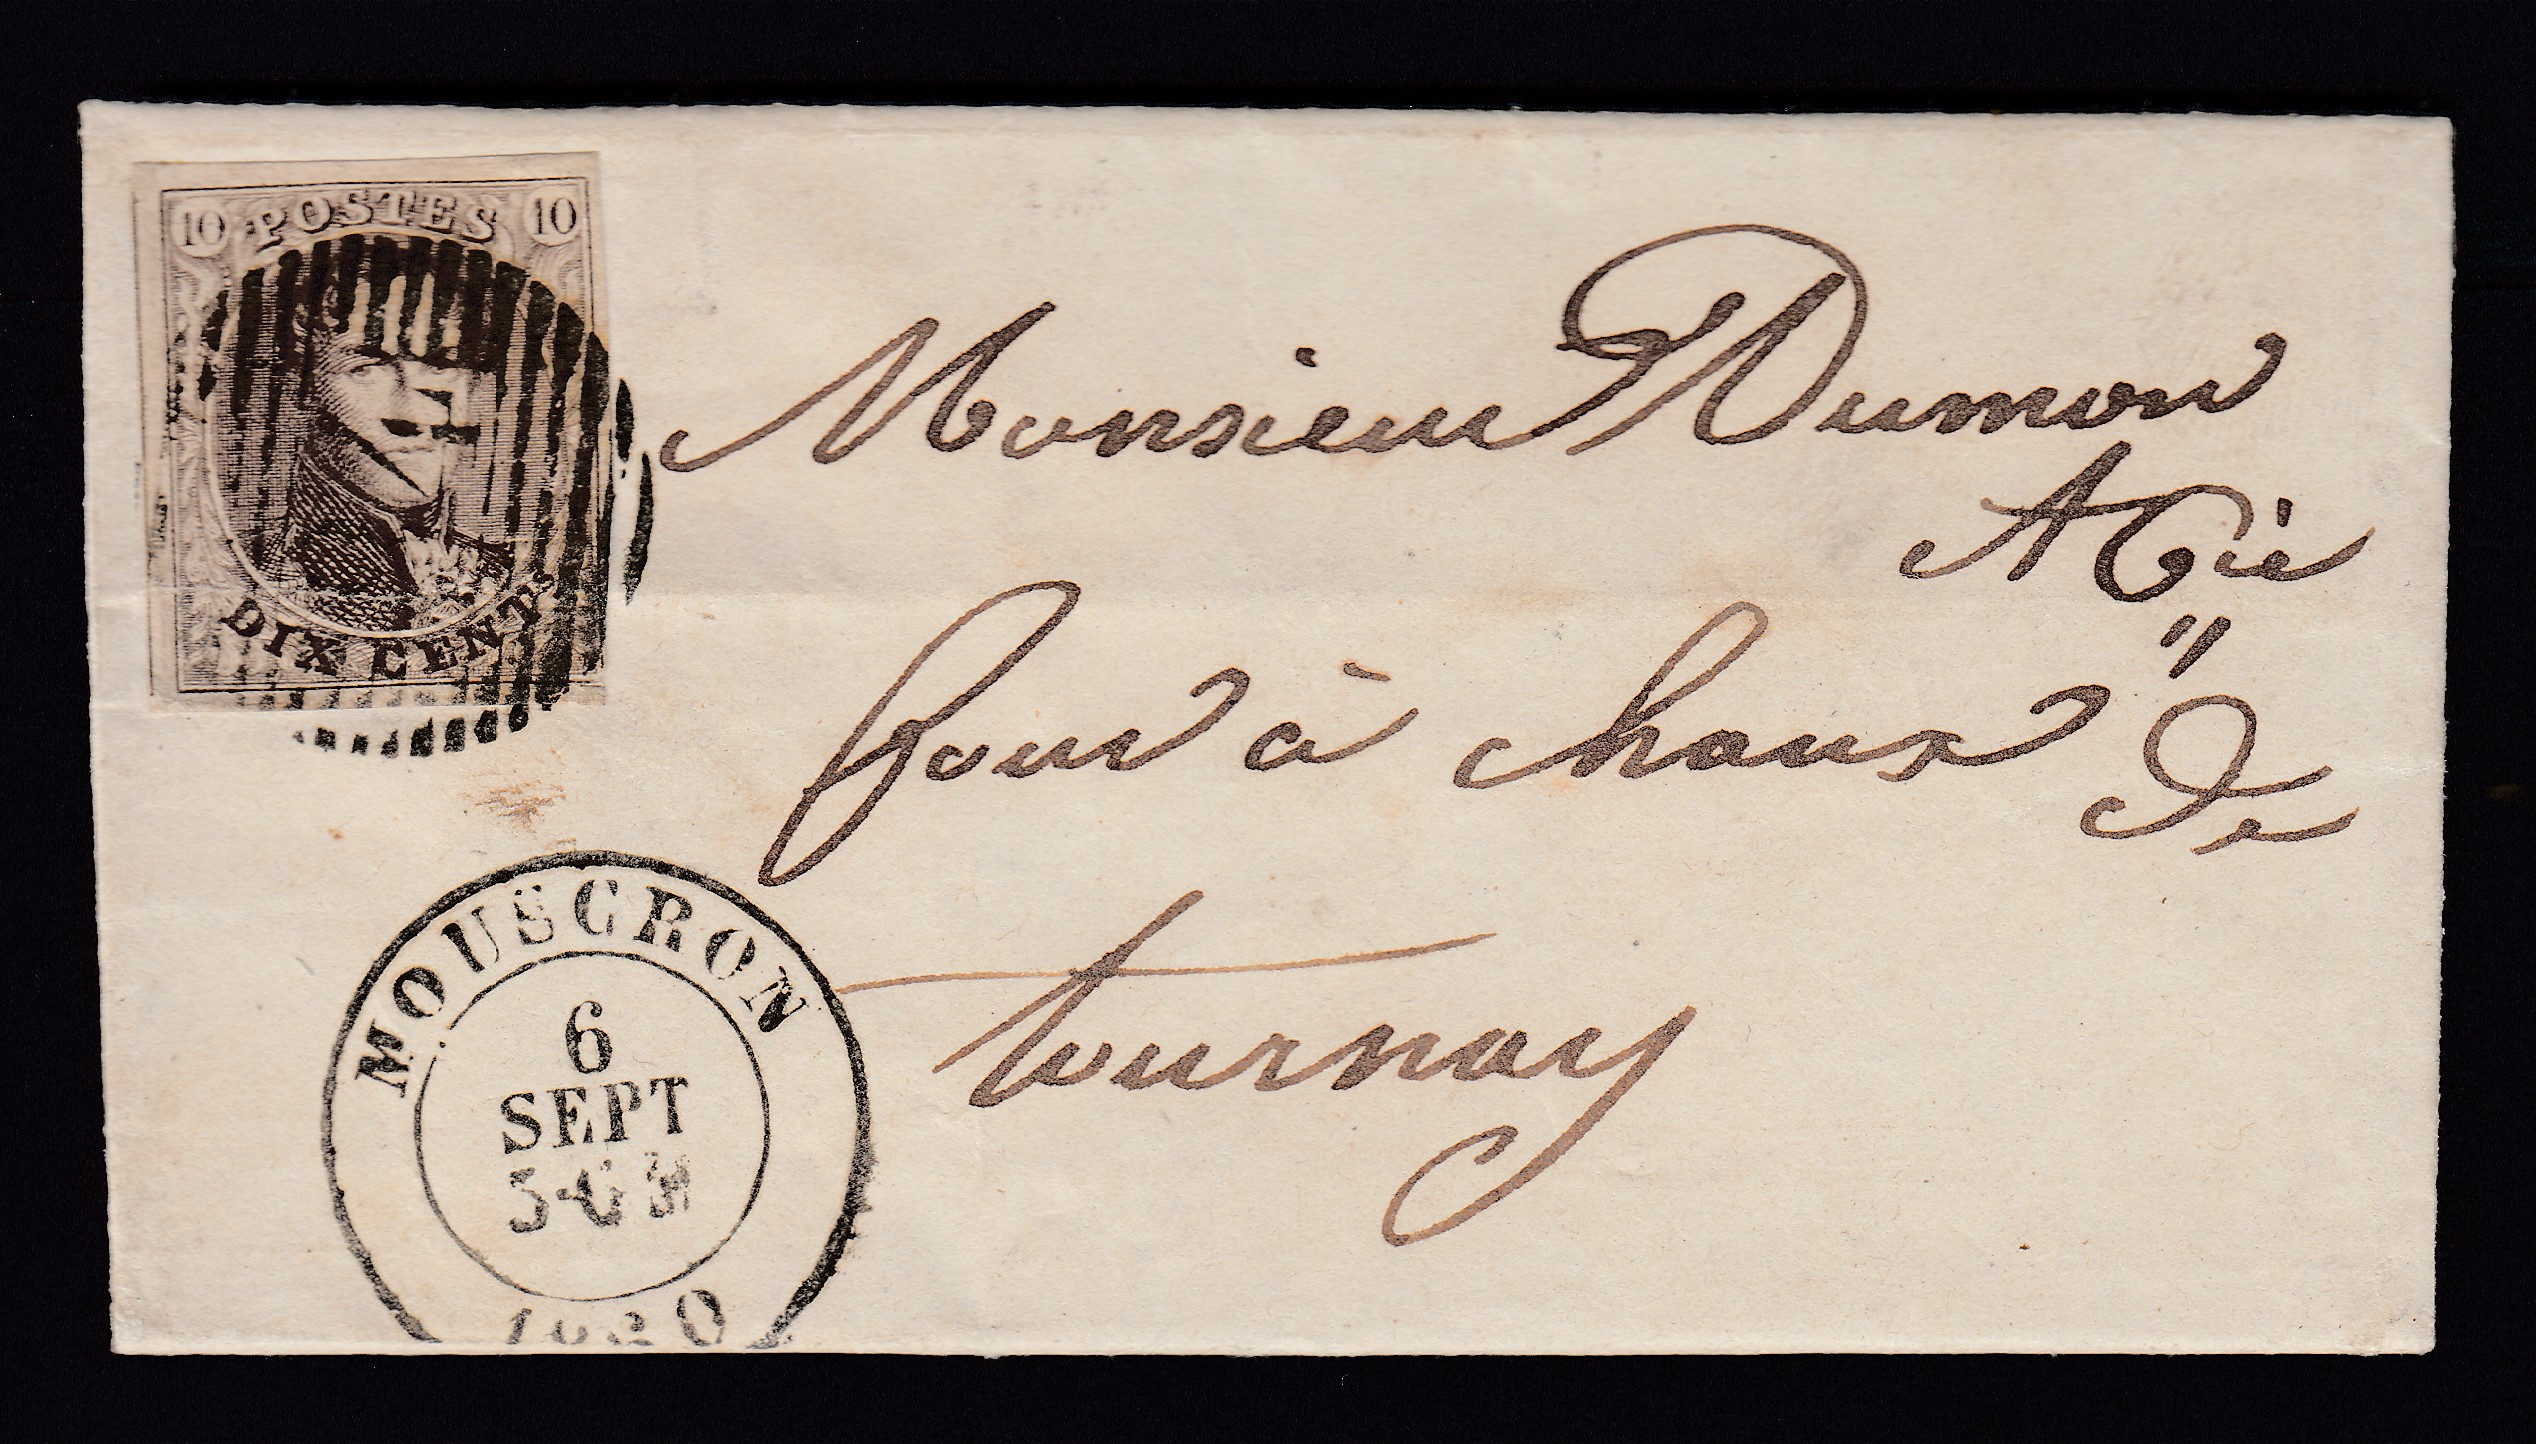 10 POSTES 10
DIX CENTS
Monsieur Dumon
& Cie
four à chaux
De
Tournay
MOUSCRON
6
SEPT